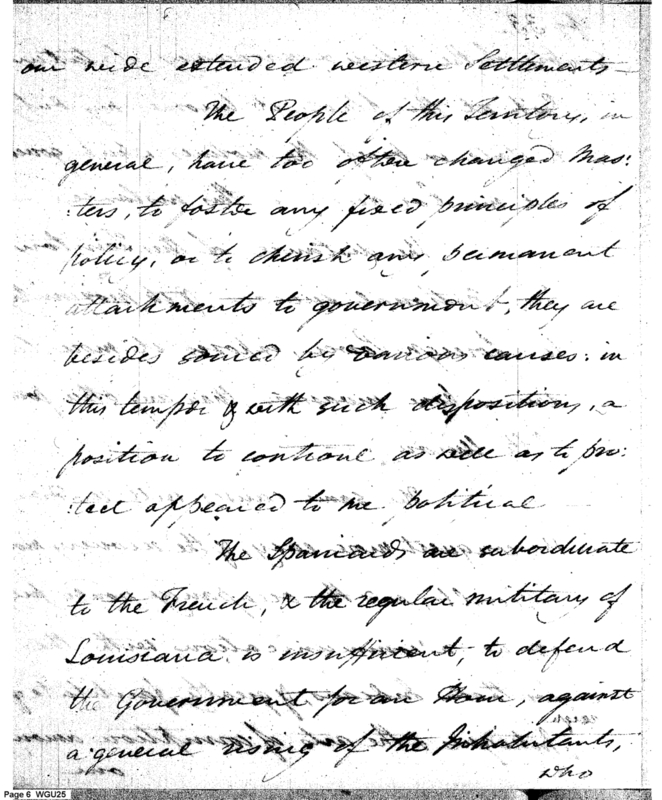 our wide extended western Settlements—
The People of this Territory, in
general, have too often changed Mas:
:ters, to foster any fixed principles of
policy, or to cherish any permanent
attachments to government, they are
besides soured by various causes: in
this temper & with such dispositions, a
position to controul as well as to pro:
:tect appeared to me political
The Spaniards are subordinate
to the French, & the regular military of
Louisiana is insufficient, to defend
the Government for an Hour, against
a general rising of the Inhabitants,
who
Page 6 WGU25